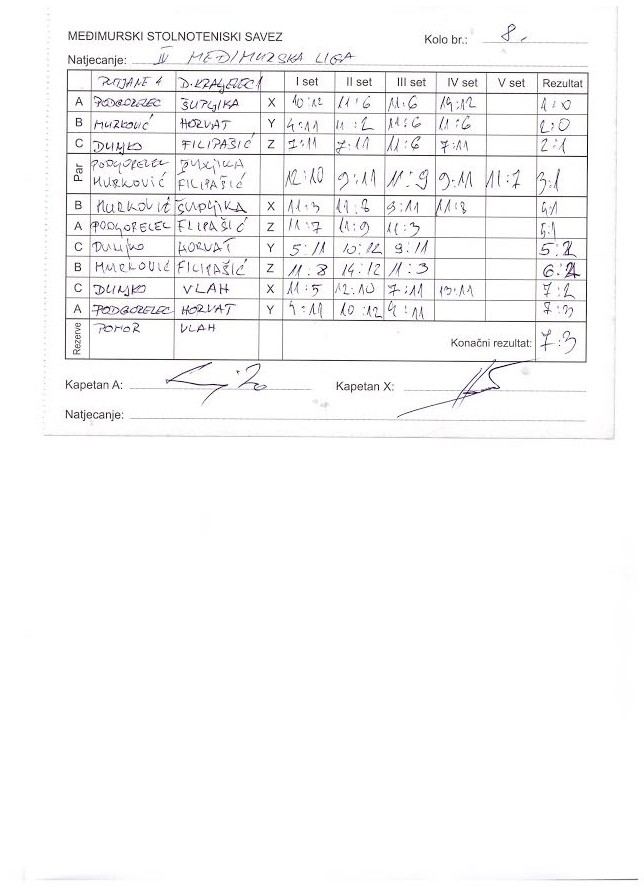 MEĐIMURSKI STOLNOTENISKI SAVEZ
Kolo br.: 8.
Natjecanje: IV MEĐIMURSKA LIGA
D. KRALJEVEC 1 I set II set III set IV set V set Rezultat
A PODGORELEC ŠUPLJIKA X 10:12 11:6 11:6 14:12 1:0
B MURKOVIĆ HORVAT Y 4:11 11:2 11:6 11:6 2:0
C DUNJKO FILIPAŠIĆ Z 7:11 7:11 11:6 7:11 2:1
Par PODGORELEC ŠUPLJIKA
MURKOVIĆ FILIPAŠIĆ 12:10 9:11 11:9 9:11 11:7 3:1
B MURKOVIĆ ŠUPLJIKA X 11:3 11:8 9:11 11:8 4:1
A PODGORELEC FLIPAŠIĆ Z 11:7 11:9 11:3 5:1
C DUNJKO HORVAT Y 5:11 10:12 9:11 5:2
B MURKOVIĆ FILIPAŠIĆ Z 11:8 14:12 11:3 6:2
C DUNJKO VLAH X 11:5 12:10 7:11 13:11 7:2
A PODGORELEC HORVAT Y 4:11 10:12 4:11 7:3
Rezerve POMOR VLAH Konačni rezultat: 7:3
Kapetan A: Kapetan X:
Natjecanje: